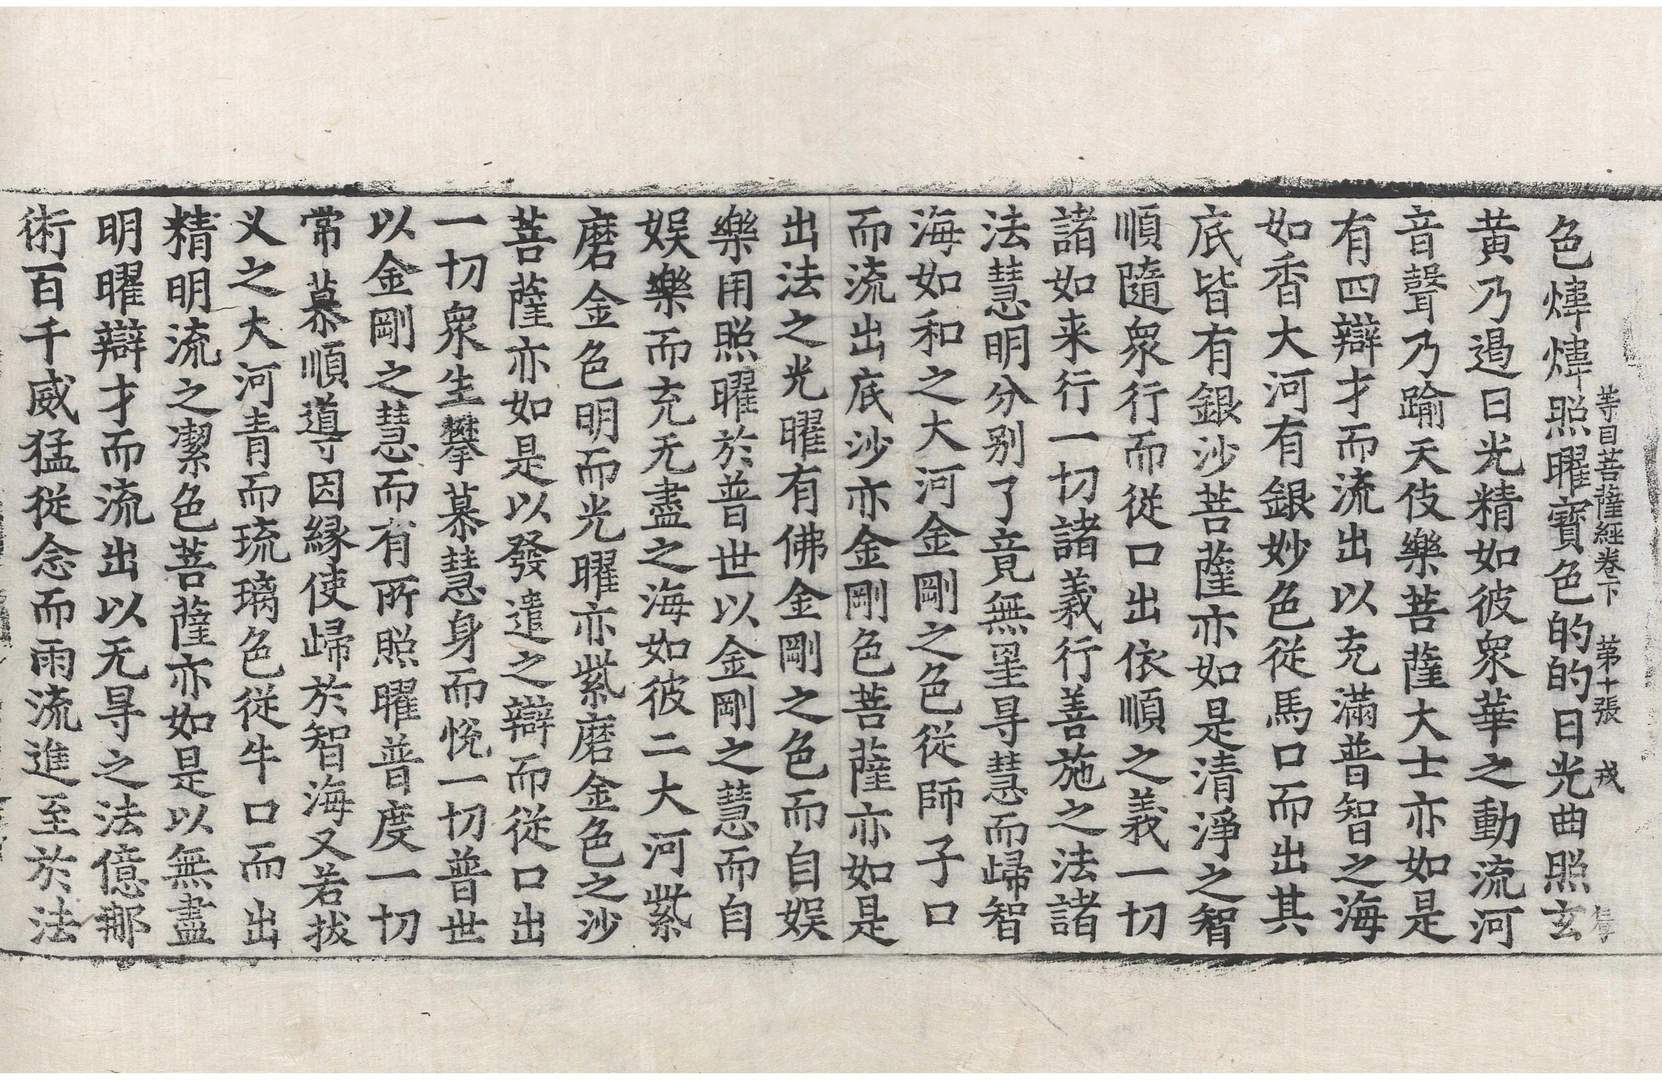 等目菩薩經卷下 第十張 戎
色煒煒照曜寳色的的日光曲照玄
黄乃遏日光精如彼衆華之動流河
音聲乃踰天伎樂菩薩大士亦如是
有四辯才而流出以充滿普智之海
如香大河有銀妙色從馬口而出其
底皆有銀沙菩薩亦如是清淨之智
順隨衆行而從口出依順之義一切
諸如来行一切諸義行善施之法諸
法慧明分别了竟無罣㝵慧而歸智
海如和之大河金剛之色從師子口
而流出底沙亦金剛色菩薩亦如是
出法之光曜有佛金剛之色而自娱
樂用照曜於普世以金剛之慧而自
娱樂而充无盡之海如彼二大河紫
磨金色明而光曜亦紫磨金色之沙
菩薩亦如是以發遣之辯而從口出
一切衆生攀慕慧身而悅一切普世
以金剛之慧而有所照曜普度一切
常慕順導因縁使歸於智海又若拔
义之大河青而琉璃色從牛口而出
精明流之潔色菩薩亦如是以無盡
明曜辯才而流出以无㝵之法億那
術百千威猛從念而雨流進至於法